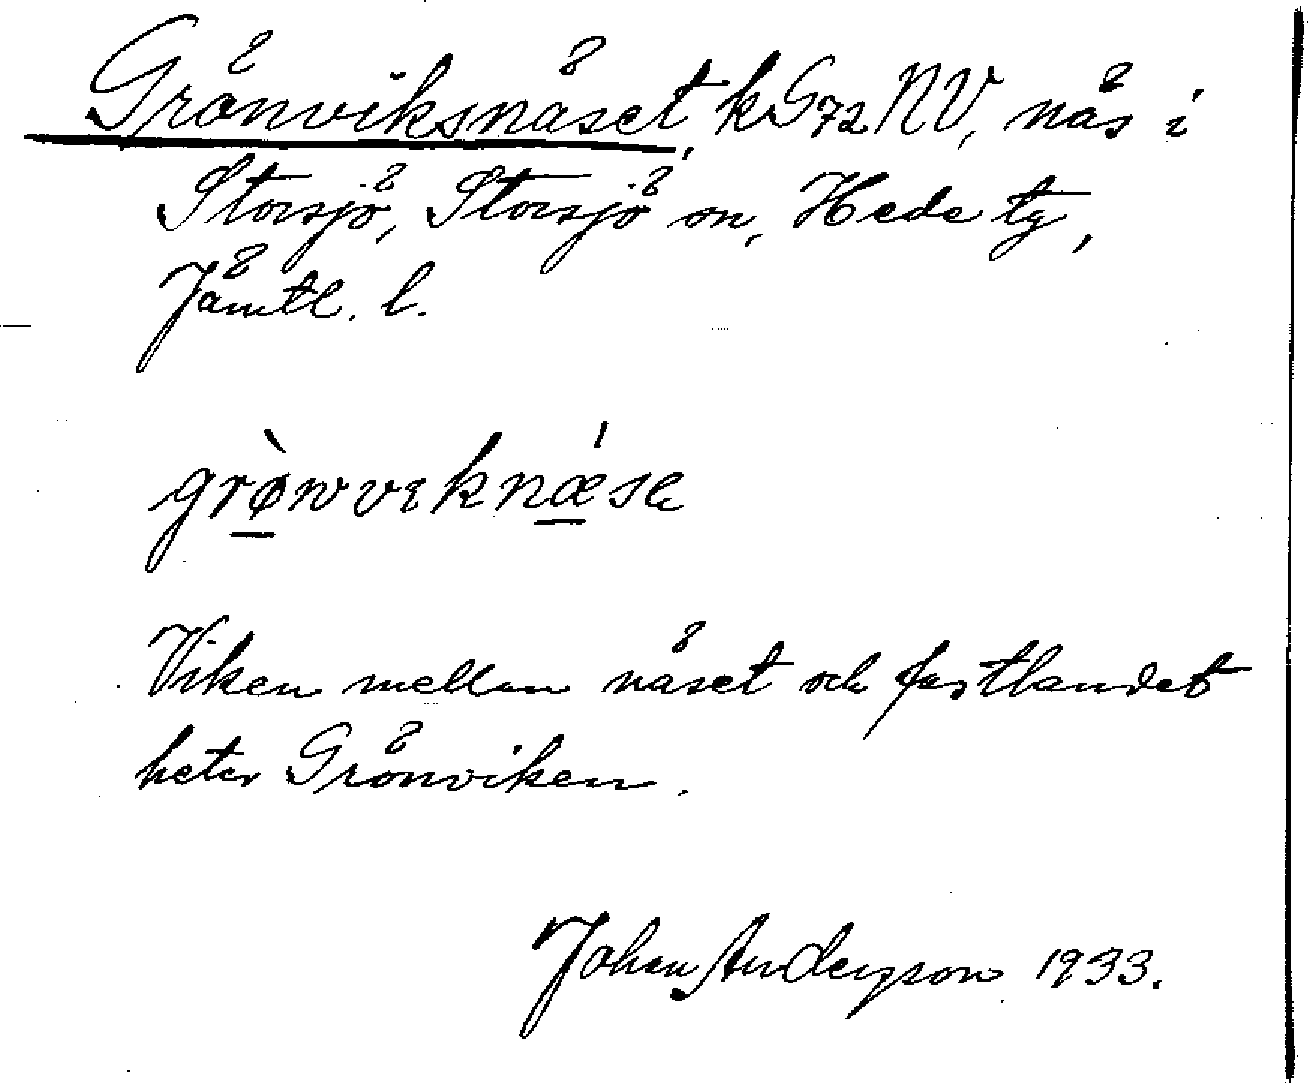 Grönviksnäset, k G72 NV, näs i
Storsjö, Storsjö sn, Hede tg,
Jämtl. l.
grø̀nvɪknǽsə
Viken mellan näset och fastlandet
heter Grönviken.
Johan Anderson 1933.